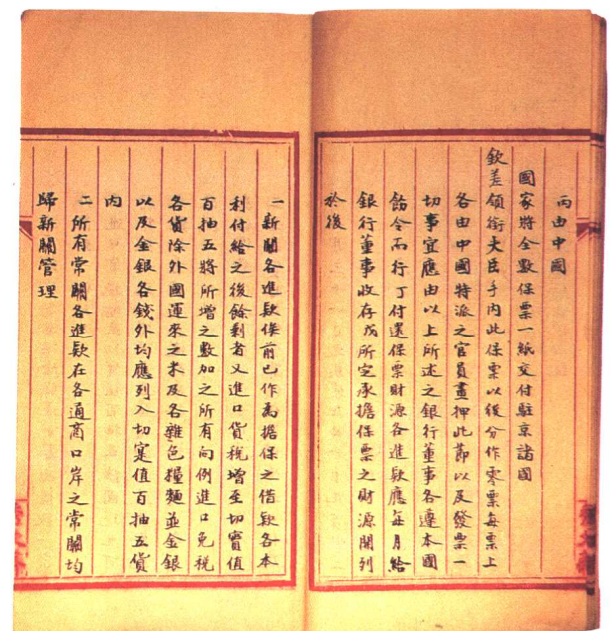 丙由中國
國家將全數保票一紙交付駐京諸國
欽差領銜大臣手內此保票以後分作零票每票上
各由中國特派之官員畫押此節以及發票一
切事宜應由以上所述之銀行董事各遵本國
飭令而行丁付還保票財源各進款應每月給
銀行董事收存戊所定承擔保票之財源開列
於後
一新關各進款俟前已作為擔保之借款各本
利付給之後餘剩者又進口貨稅增至切實值
百抽五將所增之數加之所有向例進口免稅
各貨除外國運來之米及各雜色糧麵並金銀
以及金銀各錢外均應列入切實值百抽五貨
內
二所有常關各進款在各通商口岸之常關均
歸新關管理